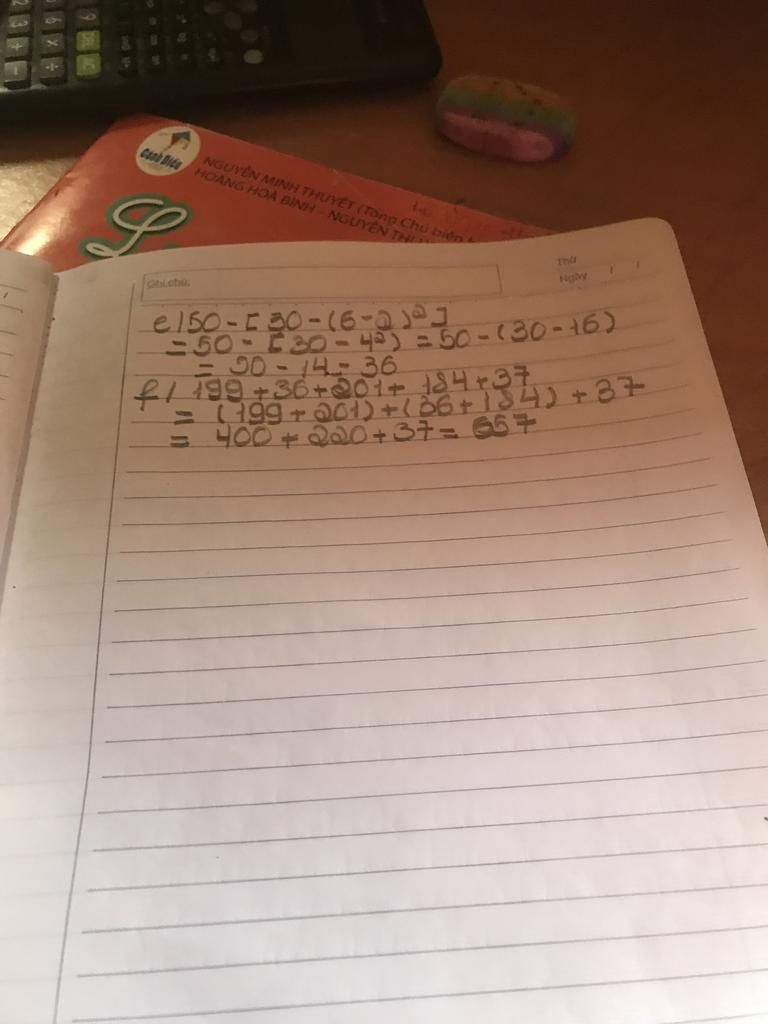 Cánh Diều
NGUYỄN MINH THUYẾT (Tổng Chủ biên
HOÀNG HOÀ BÌNH – NGUYỄN THỊ
Ghi chú:
Thứ
Ngày / /
e/50-[30-(6-2)²]
=50-[30-4²) =50-(30-16)
= 50-14=36
f/ 199+36+201+184+37
= (199+201)+(36+184)+37
= 400+220+37=657